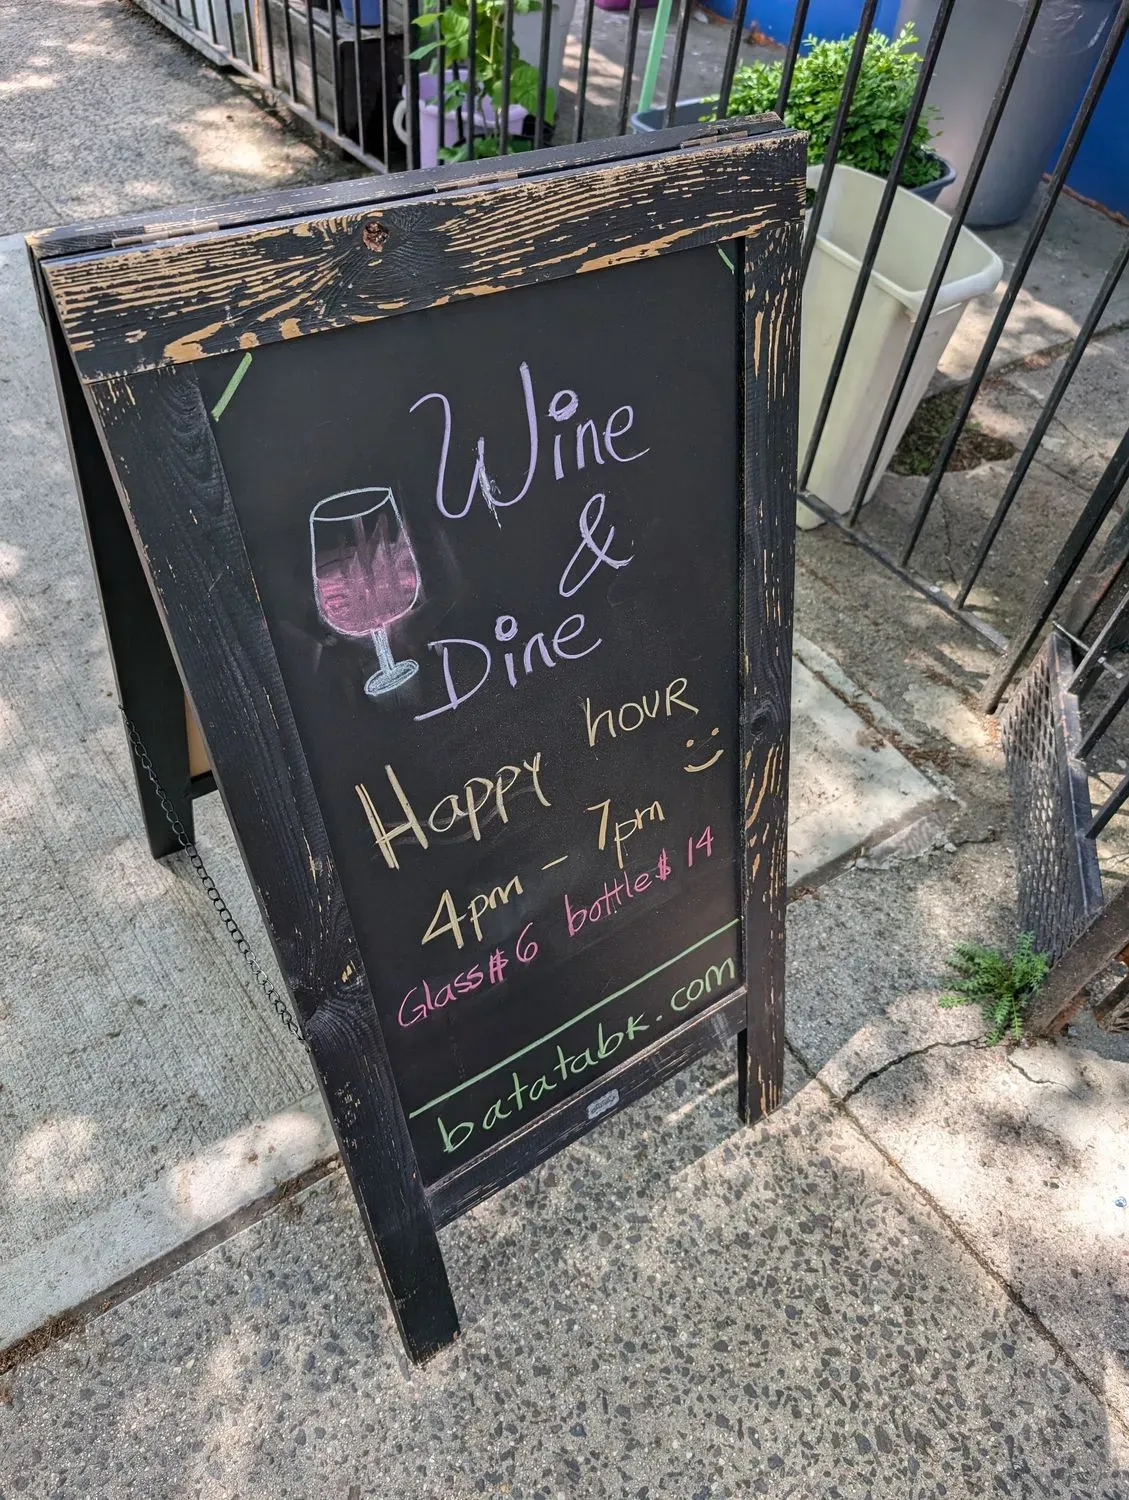 Wine
&
Dine
Happy hour
4pm - 7pm
Glass $6 bottle $14
batatabk.com